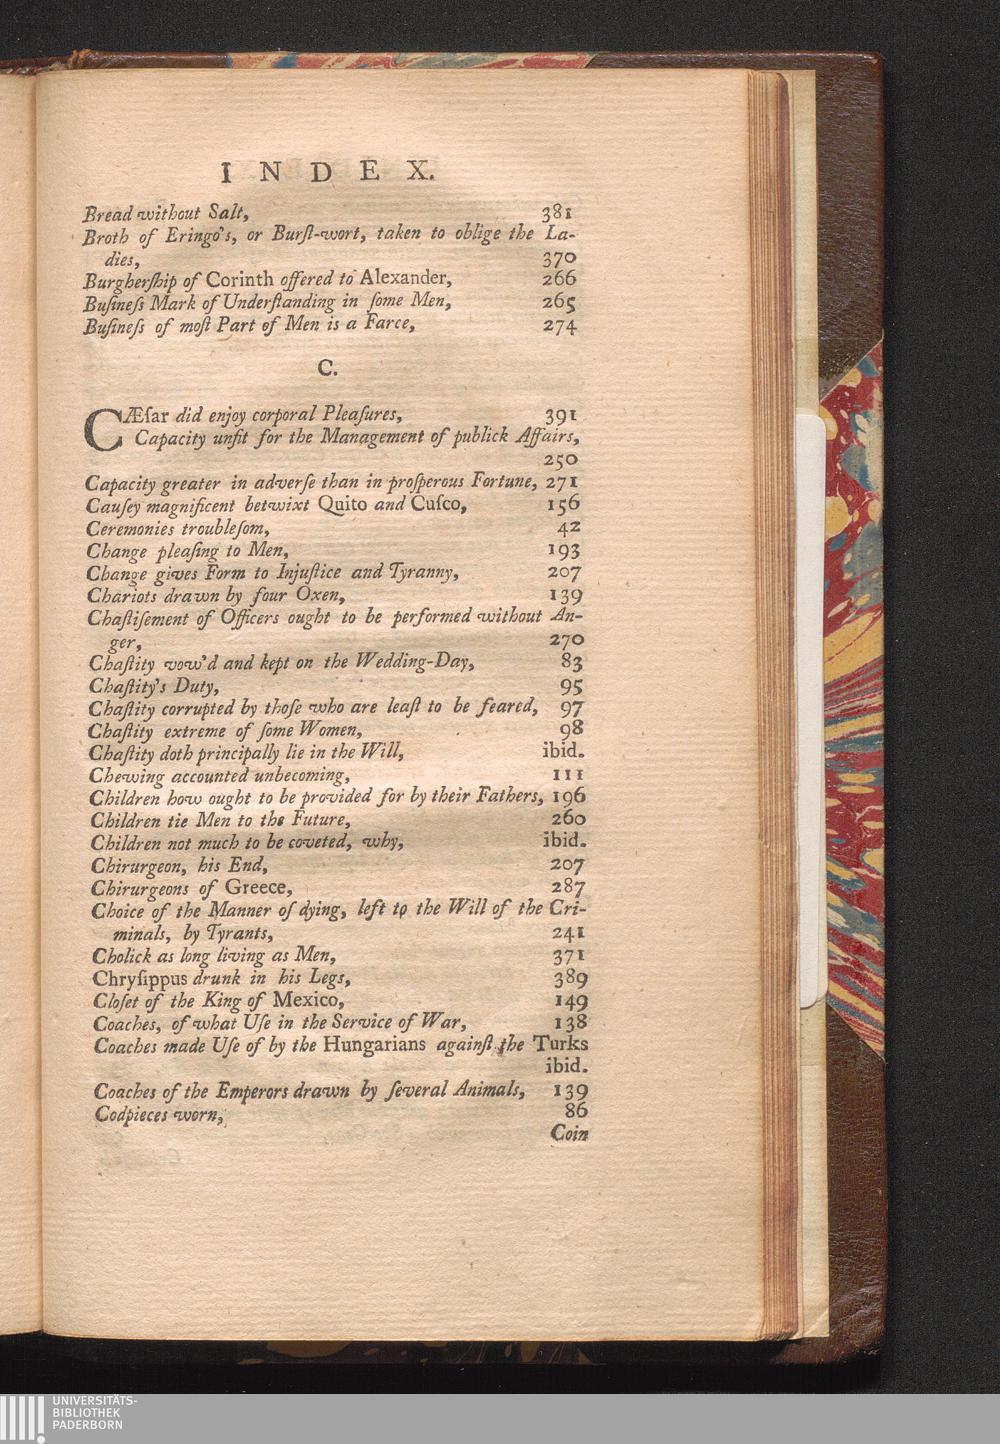 INDEX.
Bread without Salt, 381
Broth of Eringo's, or Burſt-wort, taken to oblige the La-
dies, 370
Burgherſhip of Corinth offered to Alexander, 266
Buſineſs Mark of Underſtanding in ſome Men, 265
Buſineſs of moſt Part of Men is a Farce, 274
C.
CÆſar did enjoy corporal Pleaſures, 391
Capacity unfit for the Management of publick Affairs,
250
Capacity greater in adverſe than in proſperous Fortune, 271
Cauſey magnificent betwixt Quito and Cuſco, 156
Ceremonies troubleſom, 42
Change pleaſing to Men, 193
Change gives Form to Injuſtice and Tyranny, 207
Chariots drawn by four Oxen, 139
Chaſtiſement of Officers ought to be performed without An-
ger, 270
Chaſtity vow'd and kept on the Wedding-Day, 83
Chaſtity's Duty, 95
Chaſtity corrupted by thoſe who are leaſt to be feared, 97
Chaſtity extreme of ſome Women, 98
Chaſtity doth principally lie in the Will, ibid.
Chewing accounted unbecoming, 111
Children how ought to be provided for by their Fathers, 196
Children tie Men to the Future, 260
Children not much to be coveted, why, ibid.
Chirurgeon, his End, 207
Chirurgeons of Greece, 287
Choice of the Manner of dying, left to the Will of the Cri-
minals, by Tyrants, 241
Cholick as long living as Men, 371
Chryſippus drunk in his Legs, 389
Cloſet of the King of Mexico, 149
Coaches, of what Uſe in the Service of War, 138
Coaches made Uſe of by the Hungarians againſt the Turks
ibid.
Coaches of the Emperors drawn by ſeveral Animals, 139
Codpieces worn, 86
Coin
UNIVERSITÄTS-
BIBLIOTHEK
PADERBORN